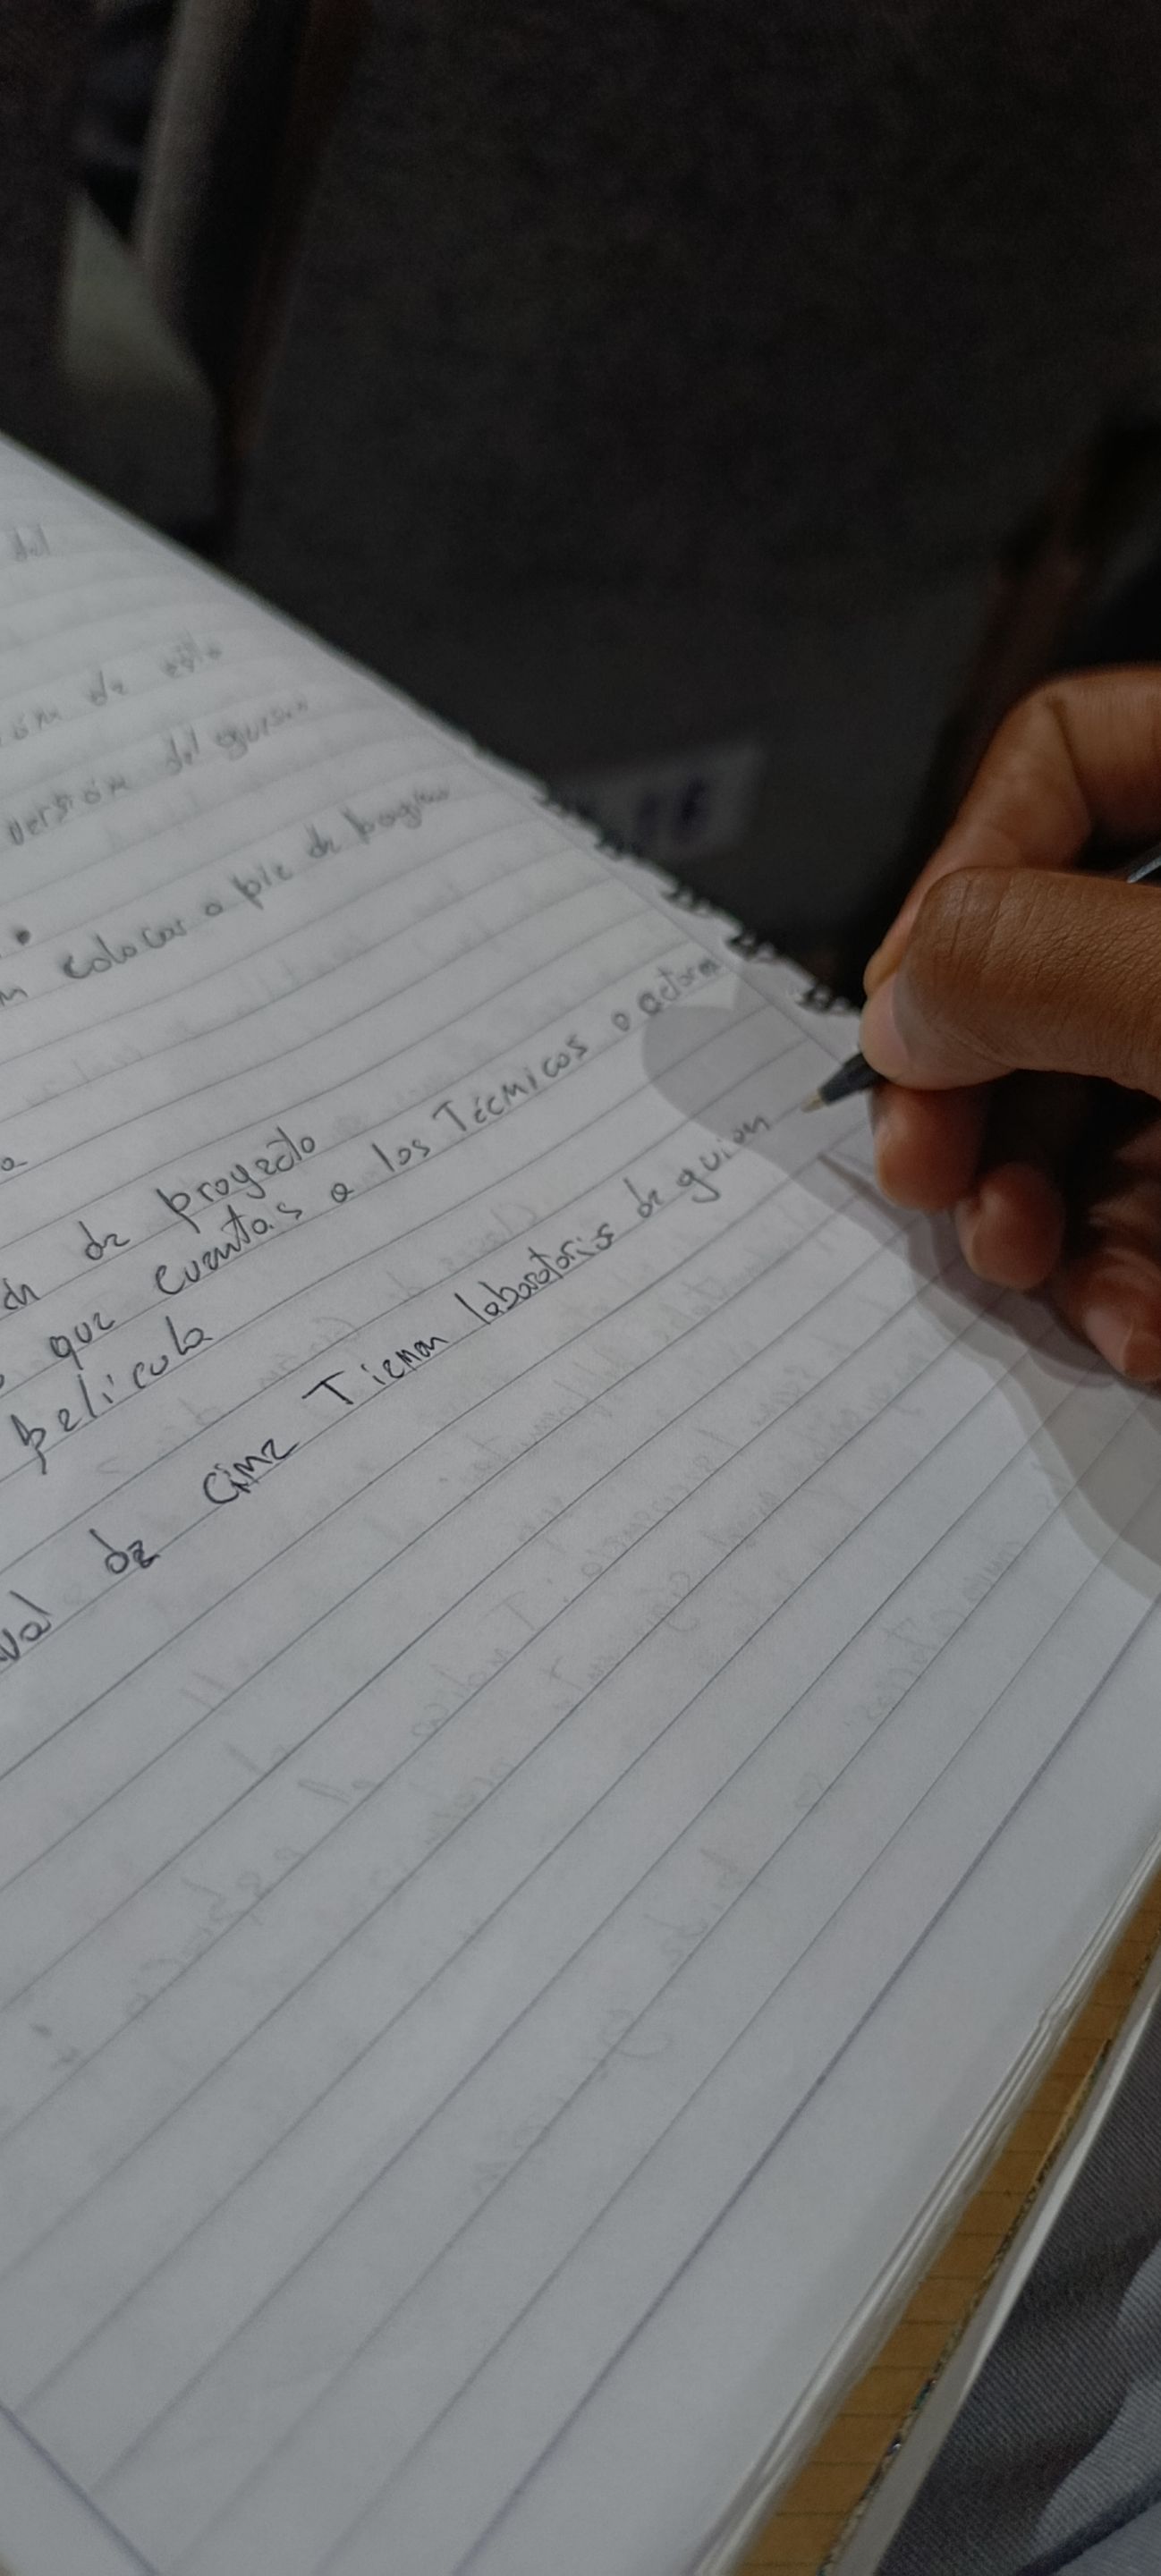 del
de estilo
versión del guion
colocar a pie de pagina
de proyecto
que cuentas a los Técnicos o actores
pelicula
de cine Tienen laboratorios de guion